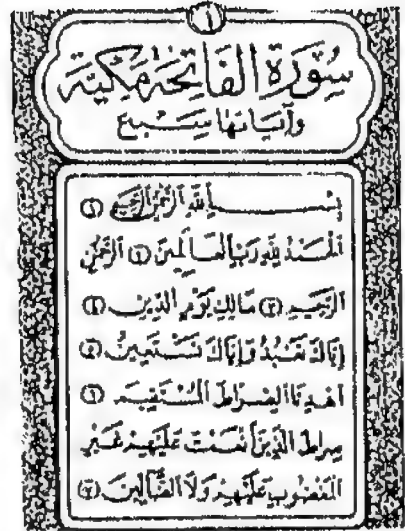 ١
سُورَةُ الفَاتِحَةِ مَكِّيَّة
وآيَاتهَا سَــبــع
بِسْــــمِ اللَّهِ الرَّحْمَٰنِ الرَّحِيمِ ①
اَلْحَمْدُ لِلَّهِ رَبِّ الْعَالَمِينَ ② الرَّحْمَٰنِ
الرَّحِيمِ ③ مَالِكِ يَوْمِ الدِّينِ ④
إِيَّاكَ نَعْبُدُ وَإِيَّاكَ نَسْتَعِينُ ⑤
اهْدِنَا الصِّرَاطَ الْمُسْتَقِيمَ ⑥
صِرَاطَ الَّذِينَ أَنْعَمْتَ عَلَيْهِمْ غَيْرِ
الْمَغْضُوبِ عَلَيْهِمْ وَلَا الضَّالِّينَ ⑦